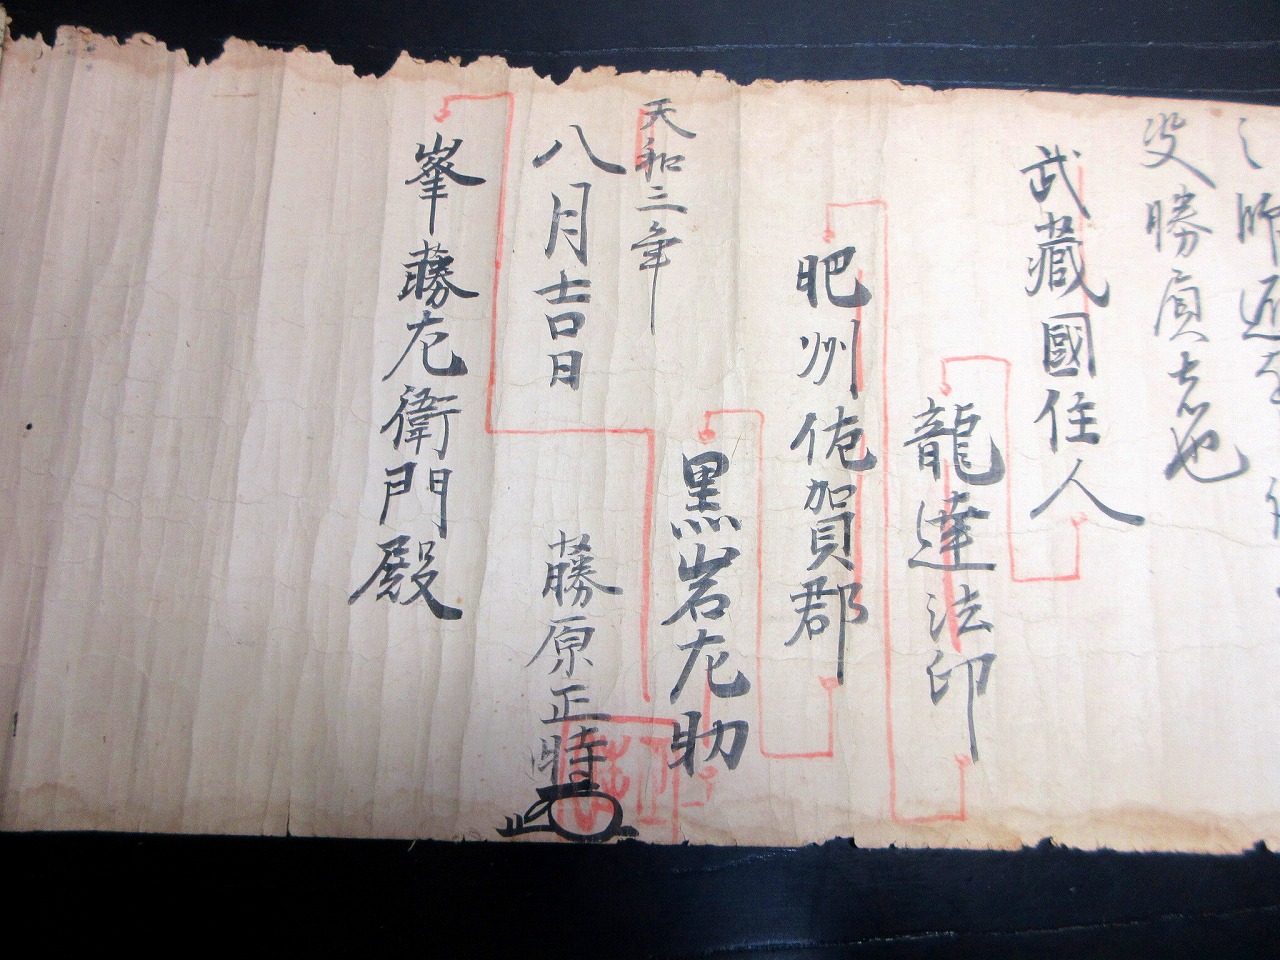 師
勝負者也
武藏國住人
龍達法印
肥州佐賀郡
黒岩左助
天和三年
八月吉日
藤原正時
峯藤左衛門殿